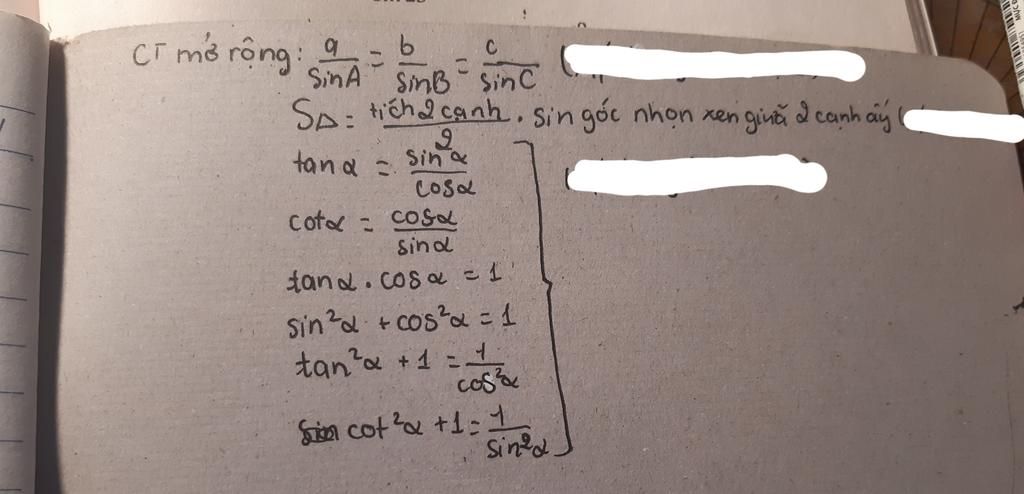 CT mở rộng: a/sinA = b/sinB = c/sinC (
S△ = tích 2 cạnh/2 . sin góc nhọn xen giữa 2 cạnh ấy (
tanα = sinα/cosα
cotα = cosα/sinα
tanα . cosα = 1
sin²α + cos²α = 1
tan²α + 1 = 1/cos²α
cot²α + 1 = 1/sin²α